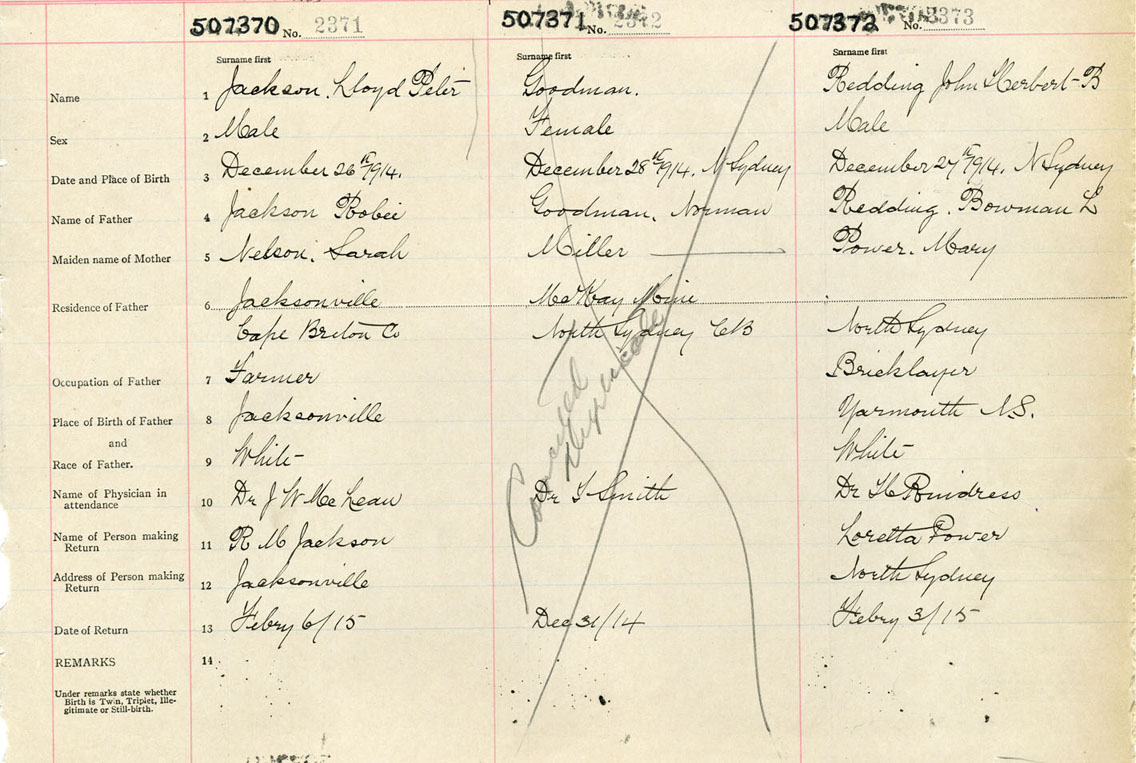 507370 No. 2371 507371 No. 2372 507372 No. 2373
Surname first Surname first Surname first
Name 1 Jackson, Lloyd Peter Goodman. Redding John Herbert-B
Sex 2 Male Female Male
Date and Place of Birth 3 December 26th 1914. December 28th 1914. N Sydney December 27th 1914. N Sydney
Name of Father 4 Jackson Goodman, Norman Redding. Bowman L
Maiden name of Mother 5 Nelson, Sarah Miller Power. Mary
Residence of Father 6 Jacksonville McKay Mine
Cape Breton Co North Sydney CB North Sydney
Occupation of Father 7 Farmer Bricklayer
Place of Birth of Father 8 Jacksonville Yarmouth N.S.
and
Race of Father. 9 White White
Name of Physician in attendance 10 Dr J W McLean Dr Smith Dr
Name of Person making Return 11 R M Jackson Loretta Power
Address of Person making Return 12 Jacksonville North Sydney
Date of Return 13 Febry 6/15 Dec 31/14 Febry 3/15
REMARKS 14
Under remarks state whether
Birth is Twin, Triplet, Ille-
gitimate or Still-birth.
Cancelled
Duplicate